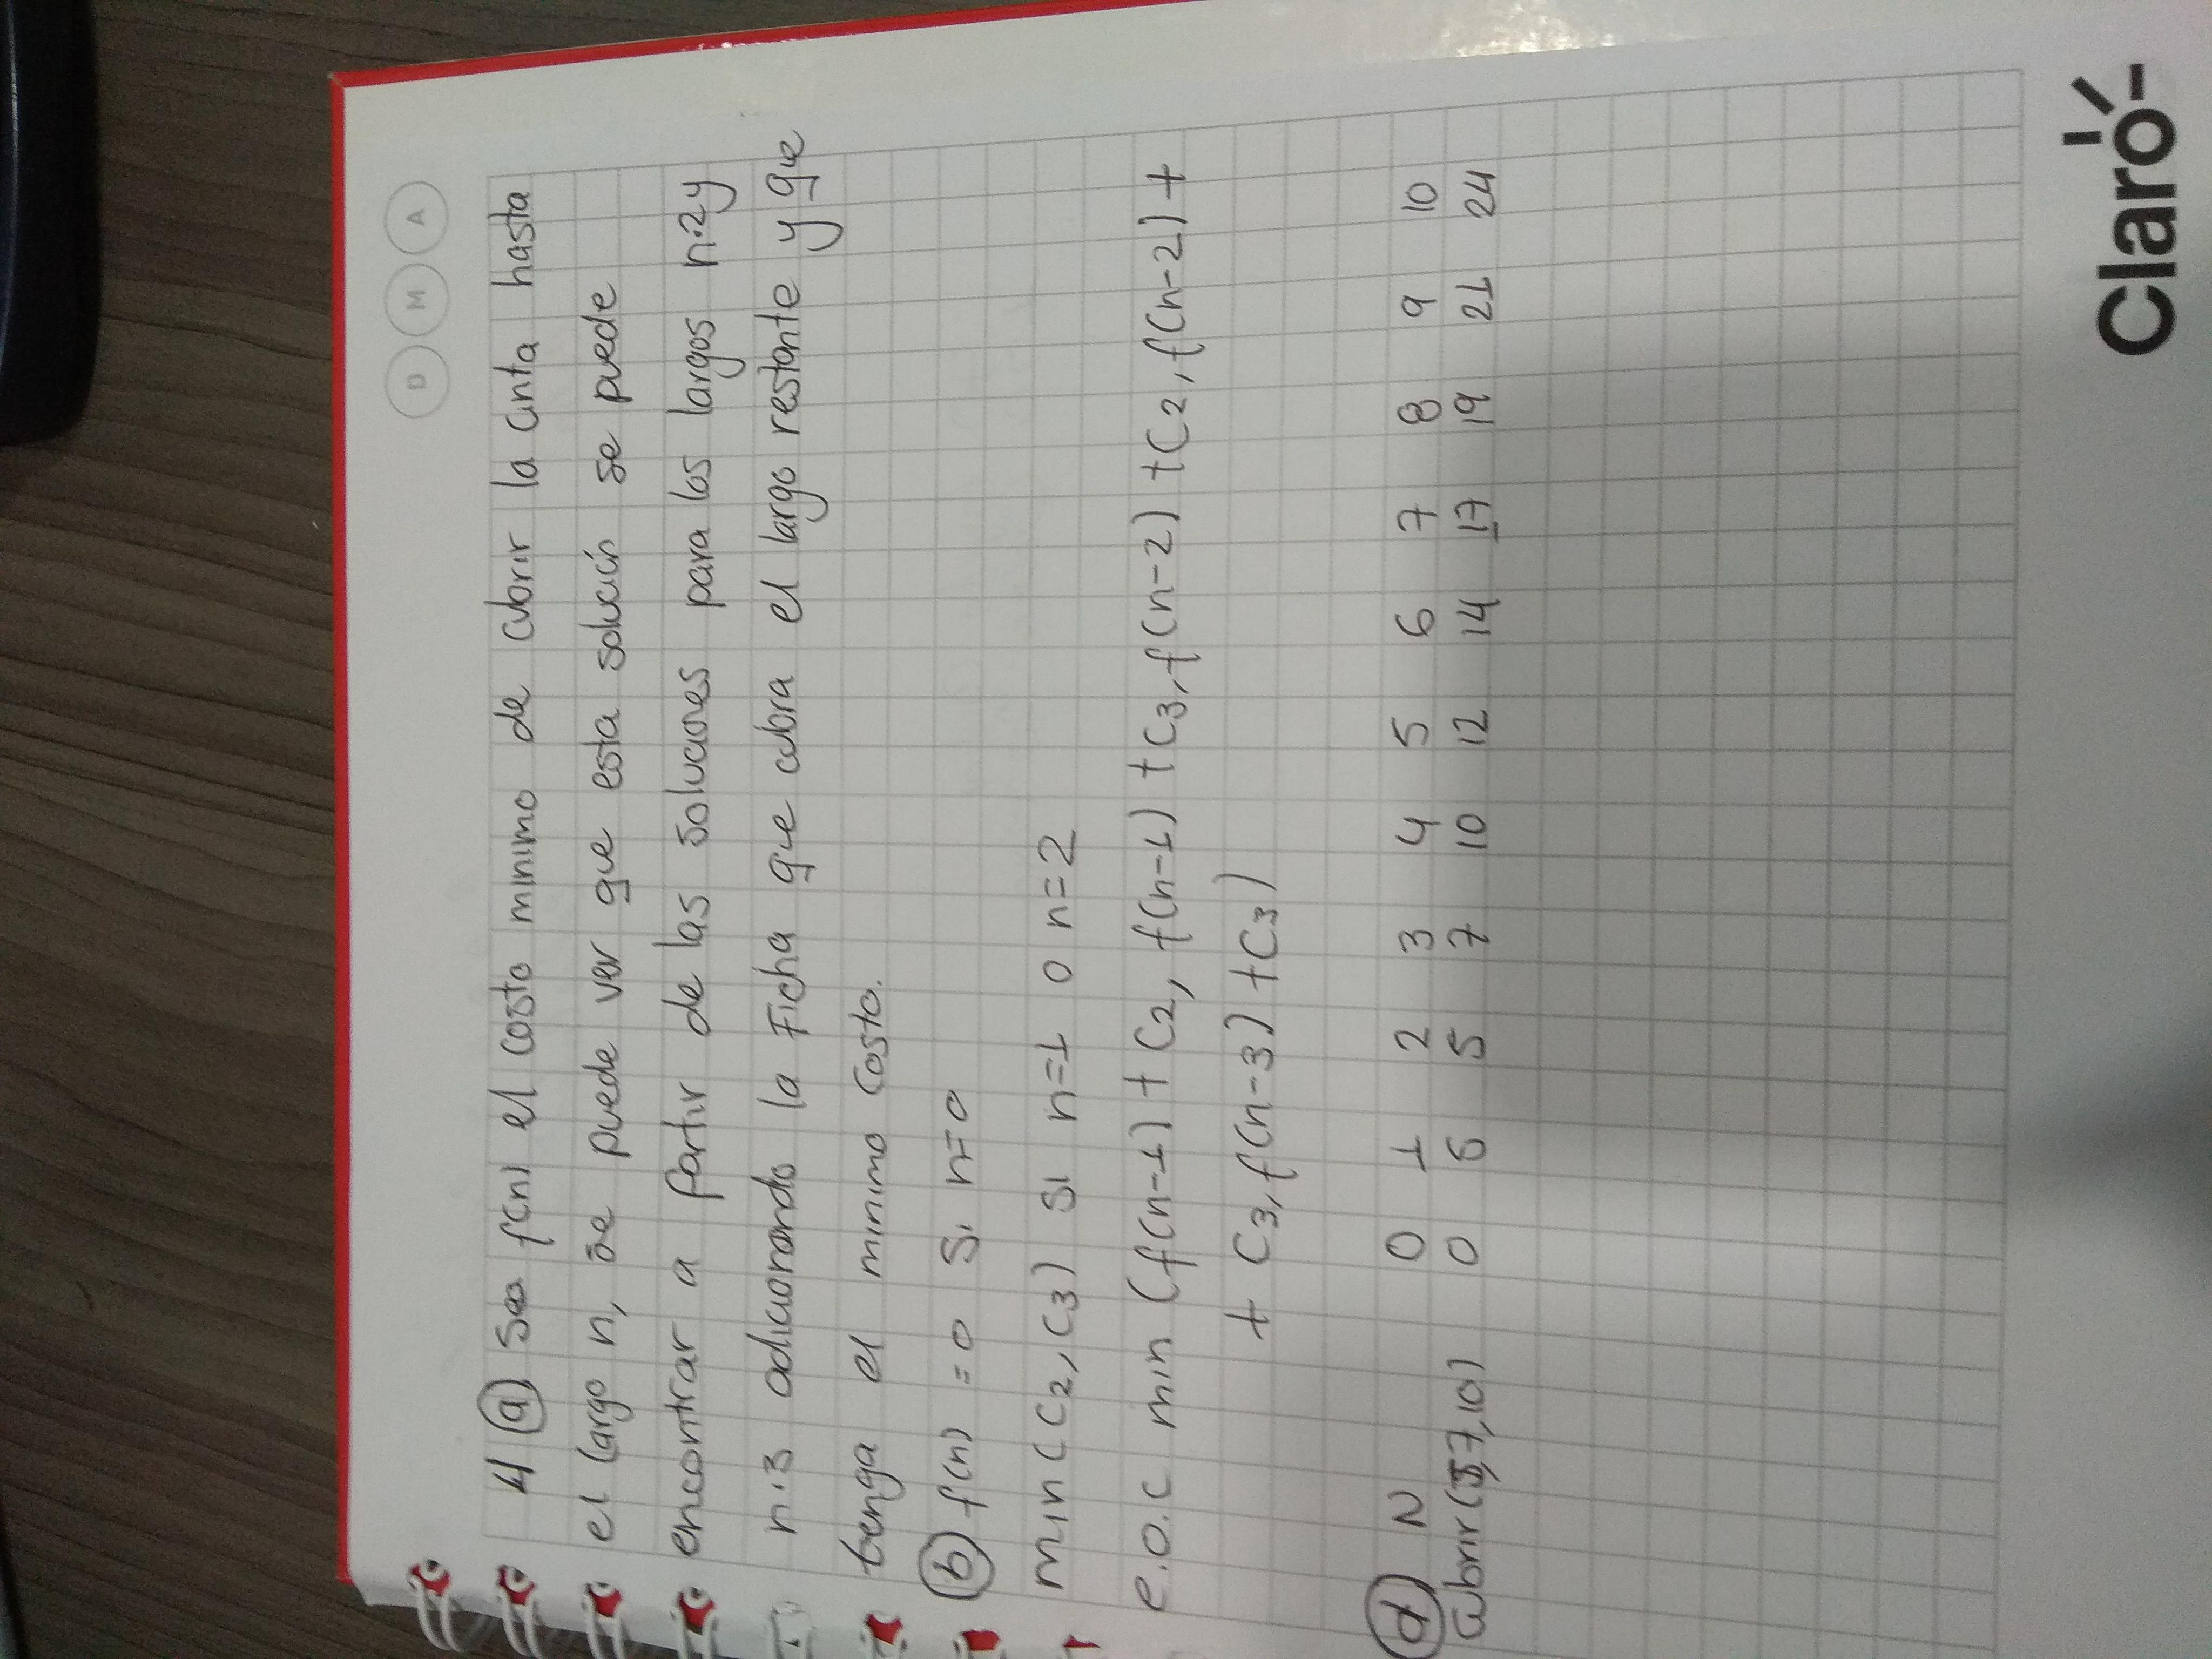 D M A
4) a) Sea f(n) el costo minimo de cubrir la cinta hasta
el largo n, se puede ver que esta solución se puede
encontrar a partir de las soluciones para los largos n-2 y
n-3 adicionando la Ficha que cubra el largo restante y que
tenga el minimo costo.
b) f(n) = 0 Si n=0
min(C2, C3) si n=1 o n=2
e.o.c min (f(n-1) + C2, f(n-1) + C3, f(n-2) + C2, f(n-2) +
+ C3, f(n-3) + C3)
d) N 0 1 2 3 4 5 6 7 8 9 10
cubrir(5,7,10) 0 5 5 7 10 12 14 17 19 21 24
Claro-